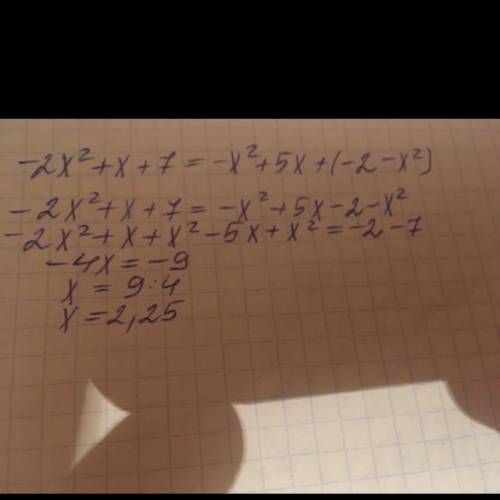 -2x²+x+7=-x²+5x+(-2-x²)
-2x²+x+7=-x²+5x-2-x²
-2x²+x+x²-5x+x²=-2-7
-4x=-9
x=9:4
x=2,25